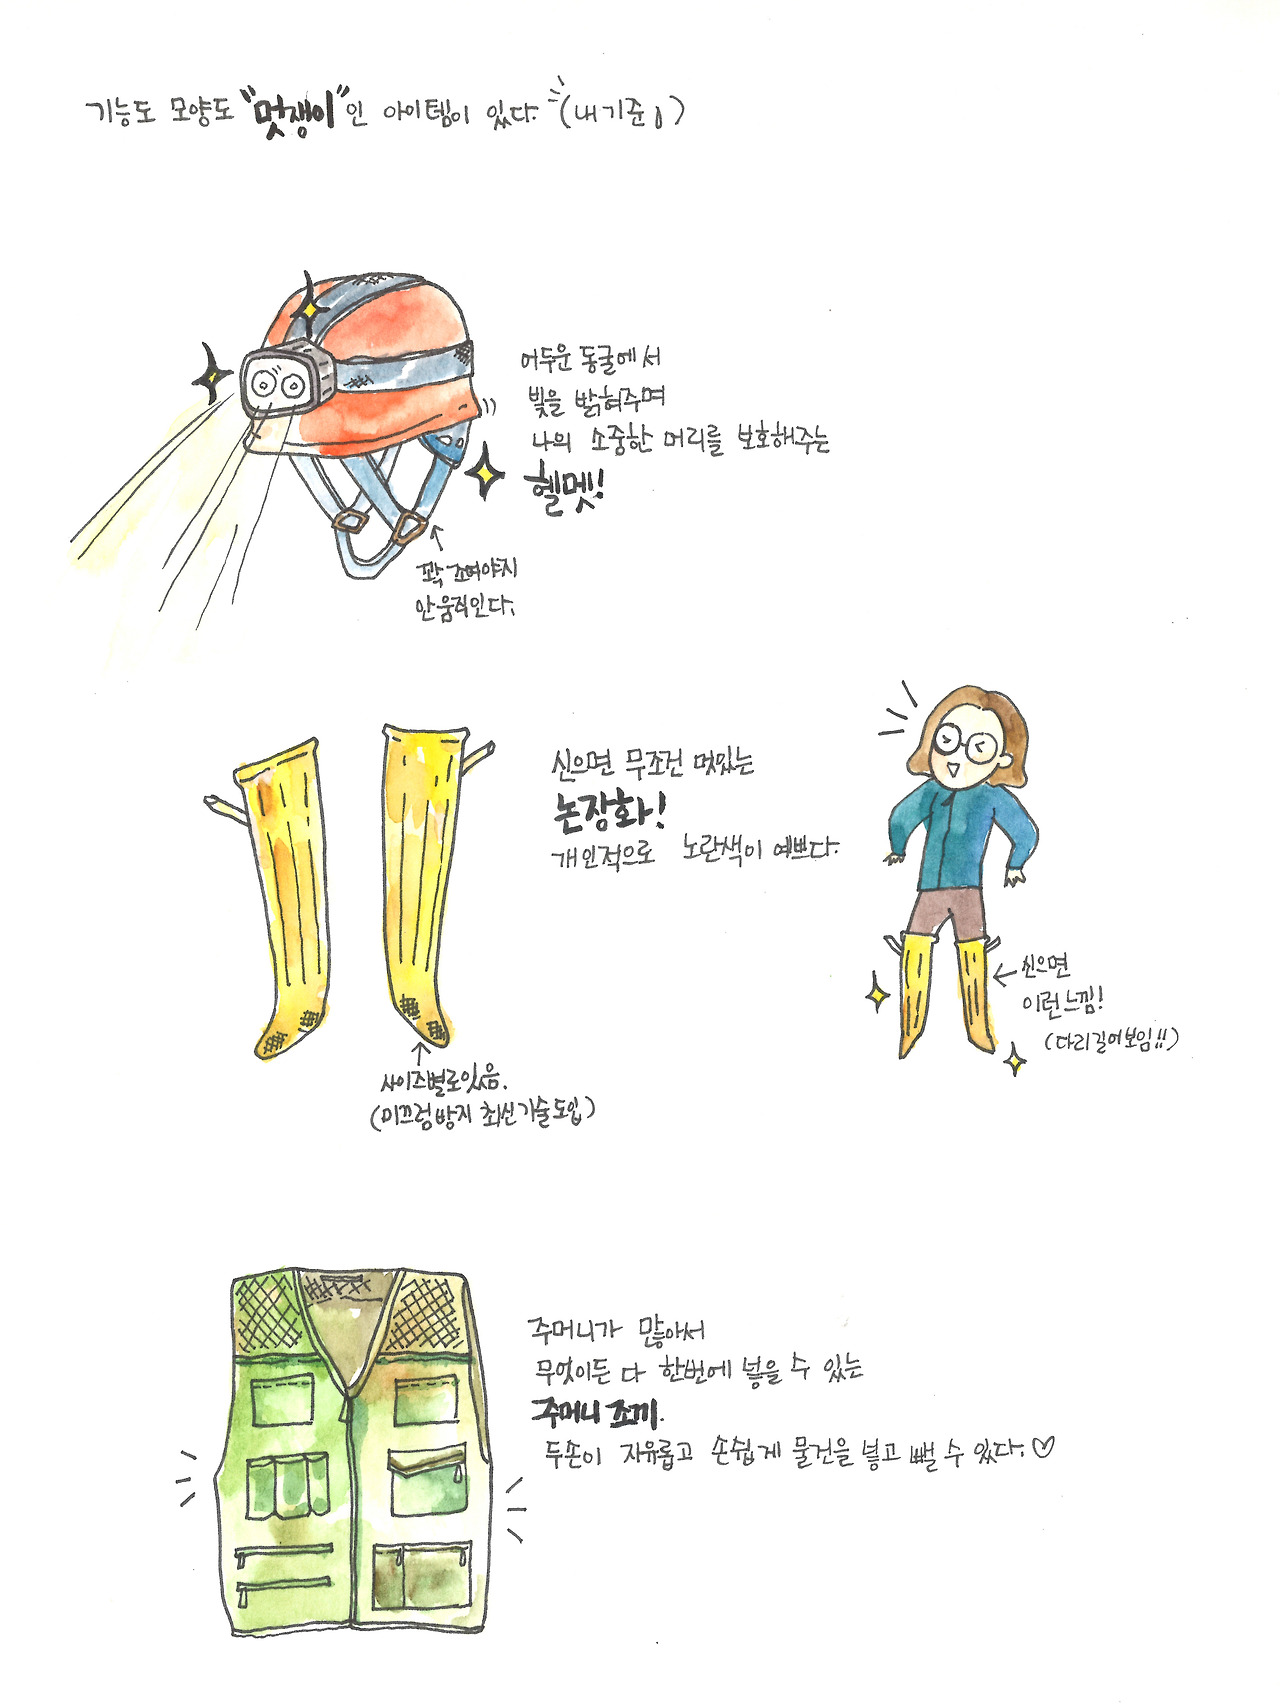 기능도 모양도 "멋쟁이"인 아이템이 있다. (내기준!)
어두운 동굴에서
빛을 밝혀주며
나의 소중한 머리를 보호해주는
헬멧!
꽉 조여야지
안움직인다.
신으면 무조건 멋있는
논장화!
개인적으로 노란색이 예쁘다.
신으면
이런느낌!
(다리길어보임!!)
사이즈별로있음.
(미끄럼방지 최신기술도입)
주머니가 많아서
무엇이든 다 한번에 넣을 수 있는
주머니 조끼.
두손이 자유롭고 손쉽게 물건을 넣고 뺄 수 있다.♡